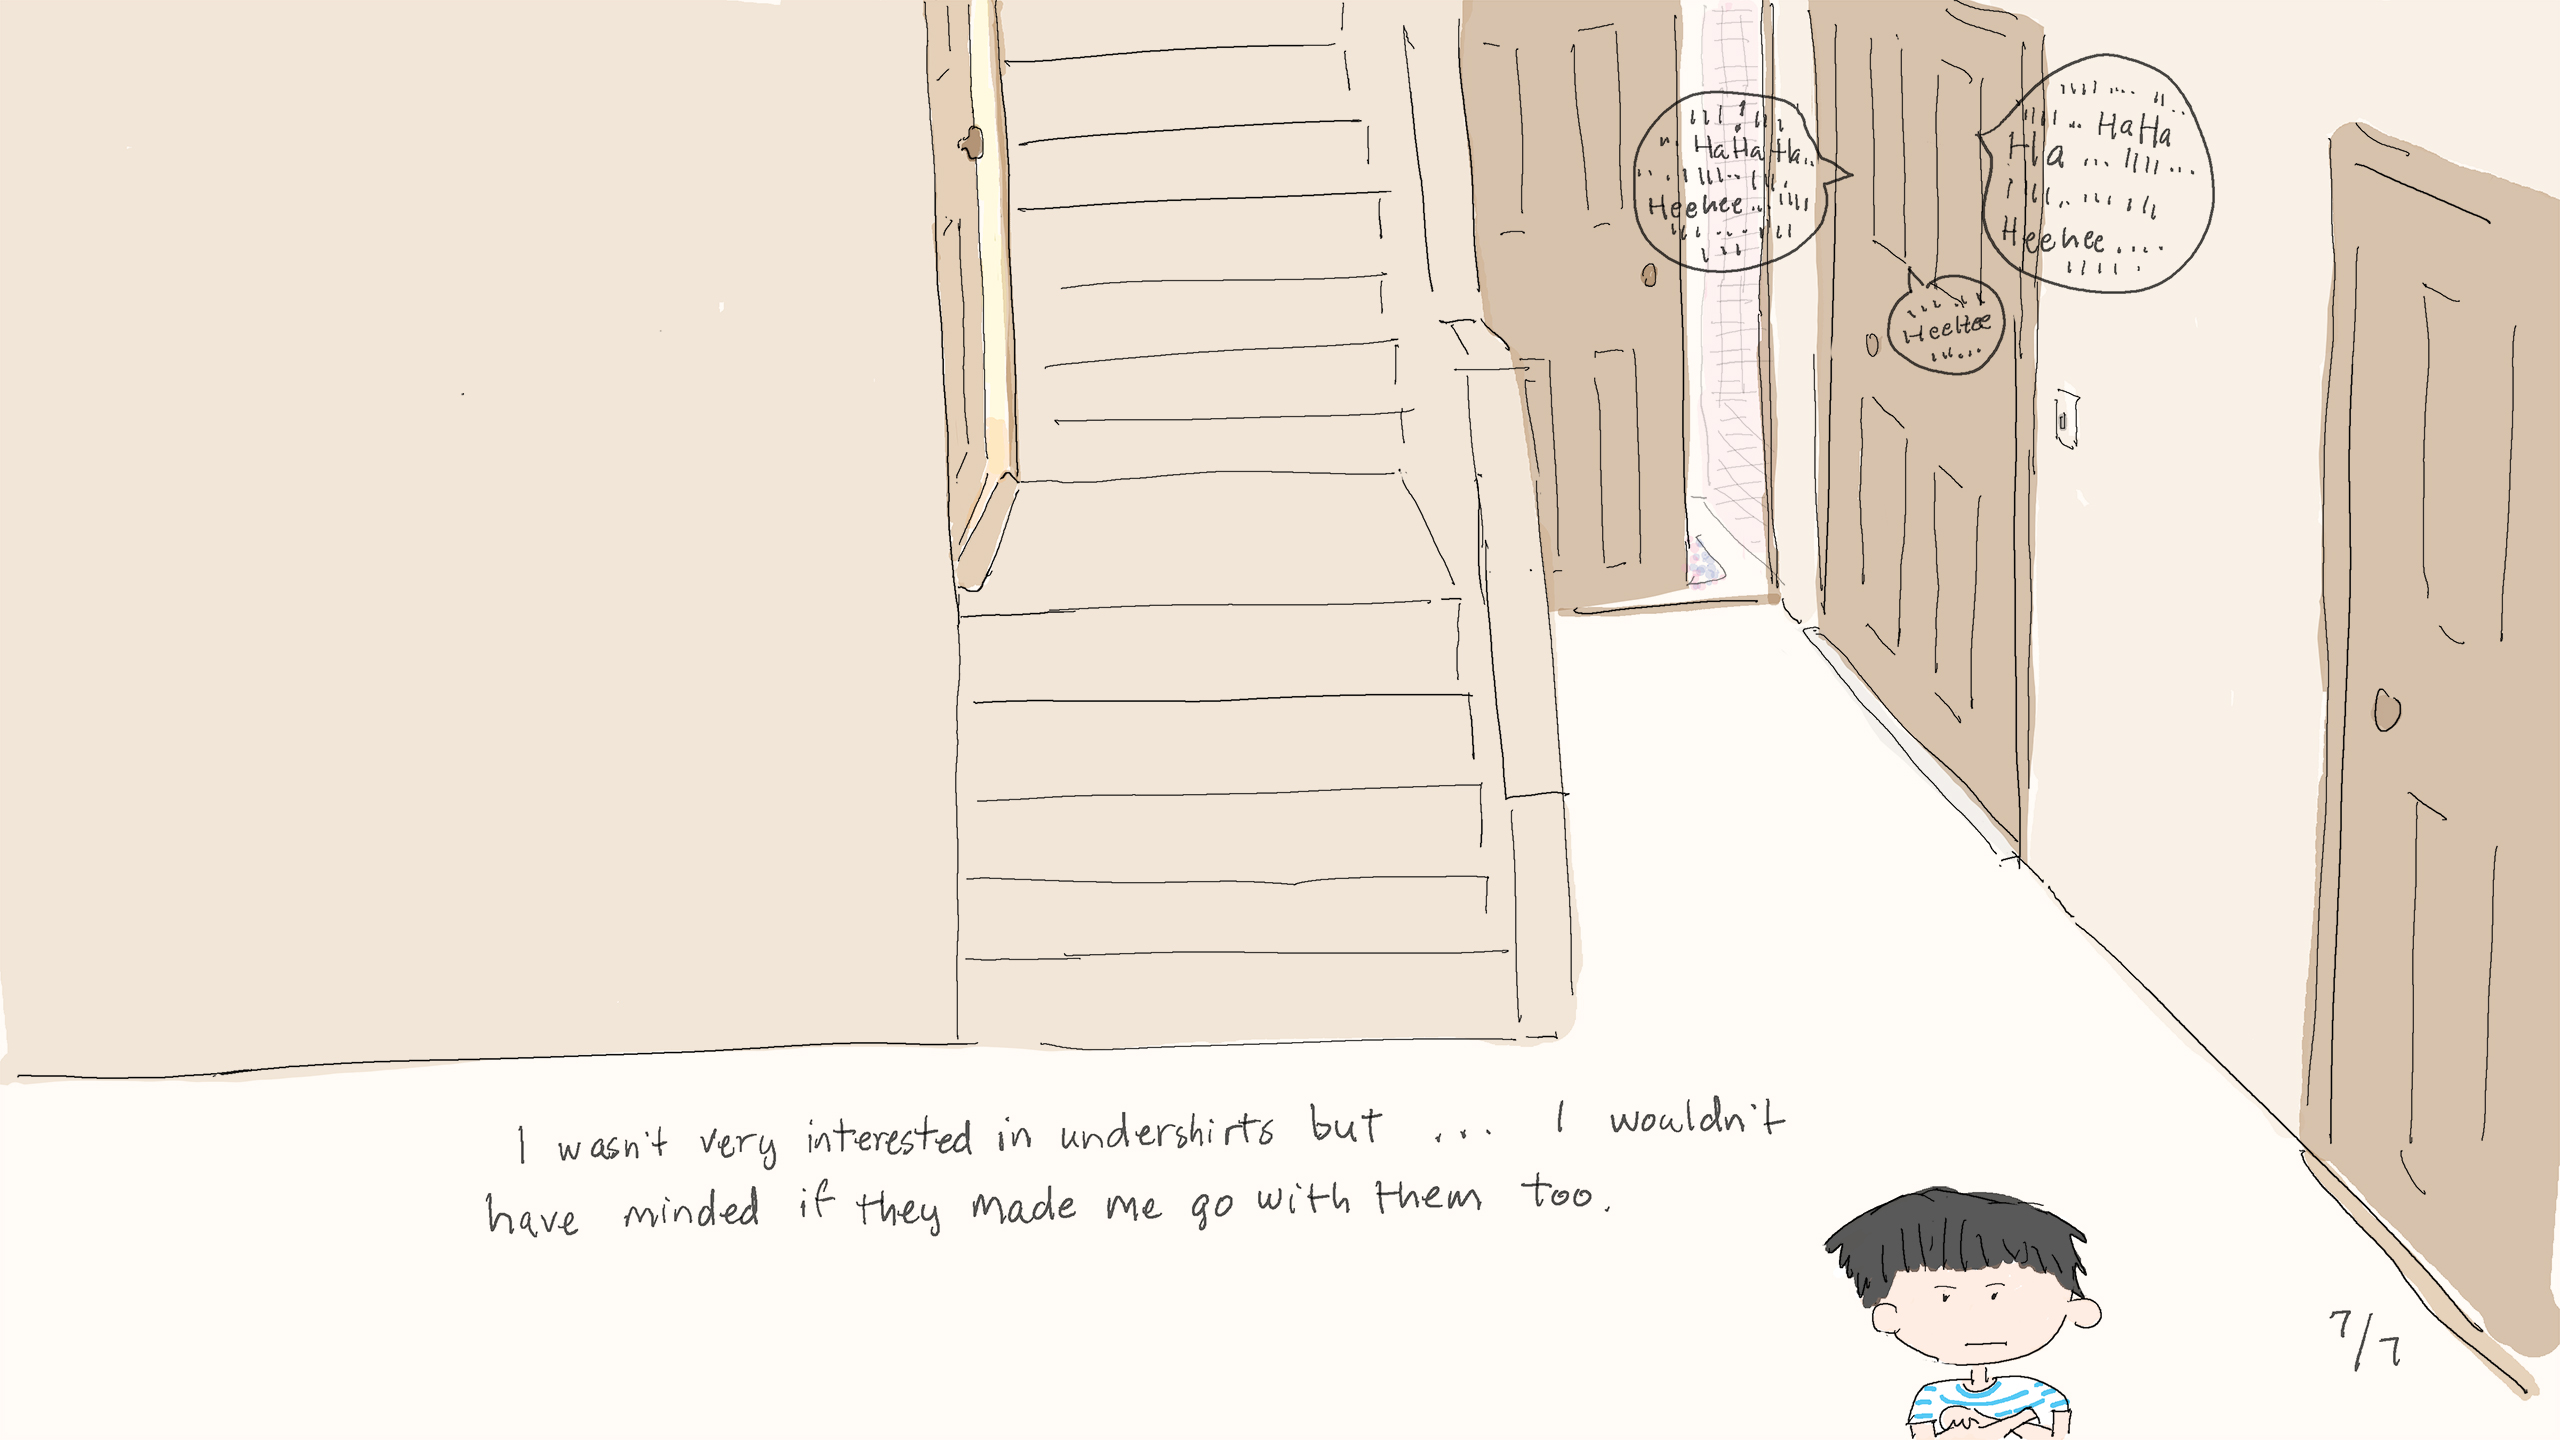 HaHa Ha..
Heehee..
HaHa
Ha...
Heehee....
HeeHee
I wasn't very interested in undershirts but ... I wouldn't
have minded if they made me go with them too.
7/7